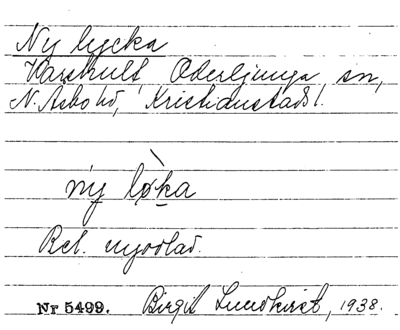 Ny lycka
Varshult, Oderljunga sn,
N. Åsbo hd, Kristianstads l.
ny løka
Bet. nyodlad.
Nr 5499. Birgit Lundkvist, 1938.